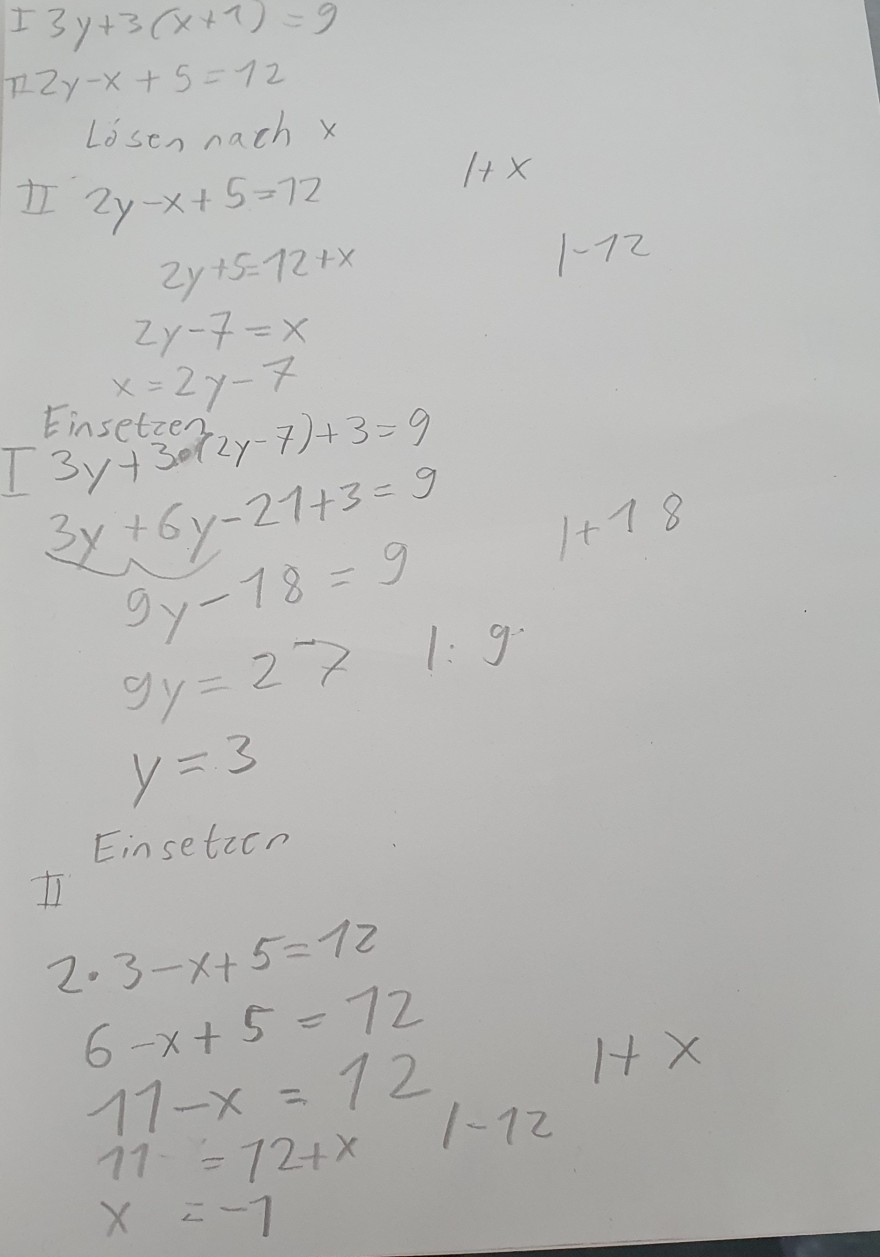 I 3y+3(x+1)=9
II 2y-x+5=12
Lösen nach x
II 2y-x+5=12 |+x
2y+5=12+x |-12
2y-7=x
x=2y-7
Einsetzen
I 3y+3•(2y-7)+3=9
3y+6y-21+3=9
9y-18=9 |+18
9y=27 |:9
y=3
Einsetzen
II
2•3-x+5=12
6-x+5=12
11-x=12 |+x
11=12+x |-12
x=-1